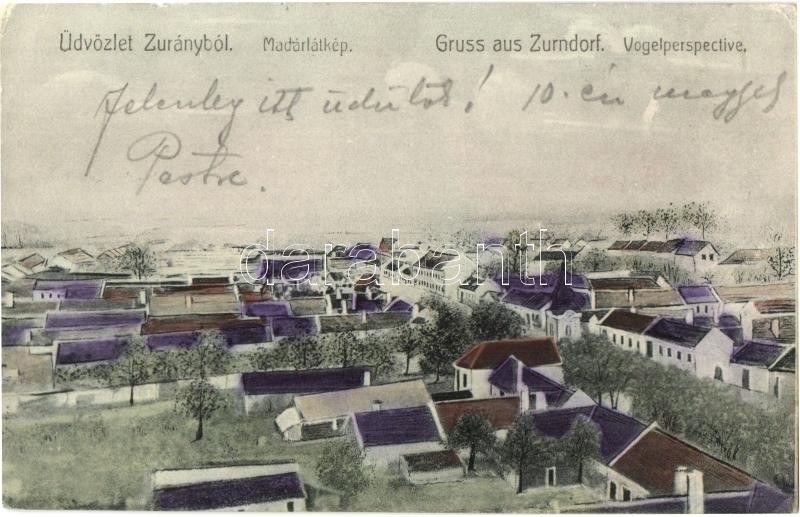 Üdvözlet Zurányból. Madárlátkép. Gruss aus Zurndorf. Vogelperspective.
Jelenleg itt üdülök! 10.-én megyek
Pestre.
darabanth